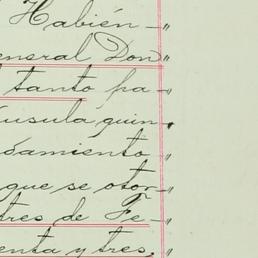 Habién-"
eneral Don"
tanto pa-"
usula quin
damiento "
que se otor-"
tres de Fe-"
enta y tres,"